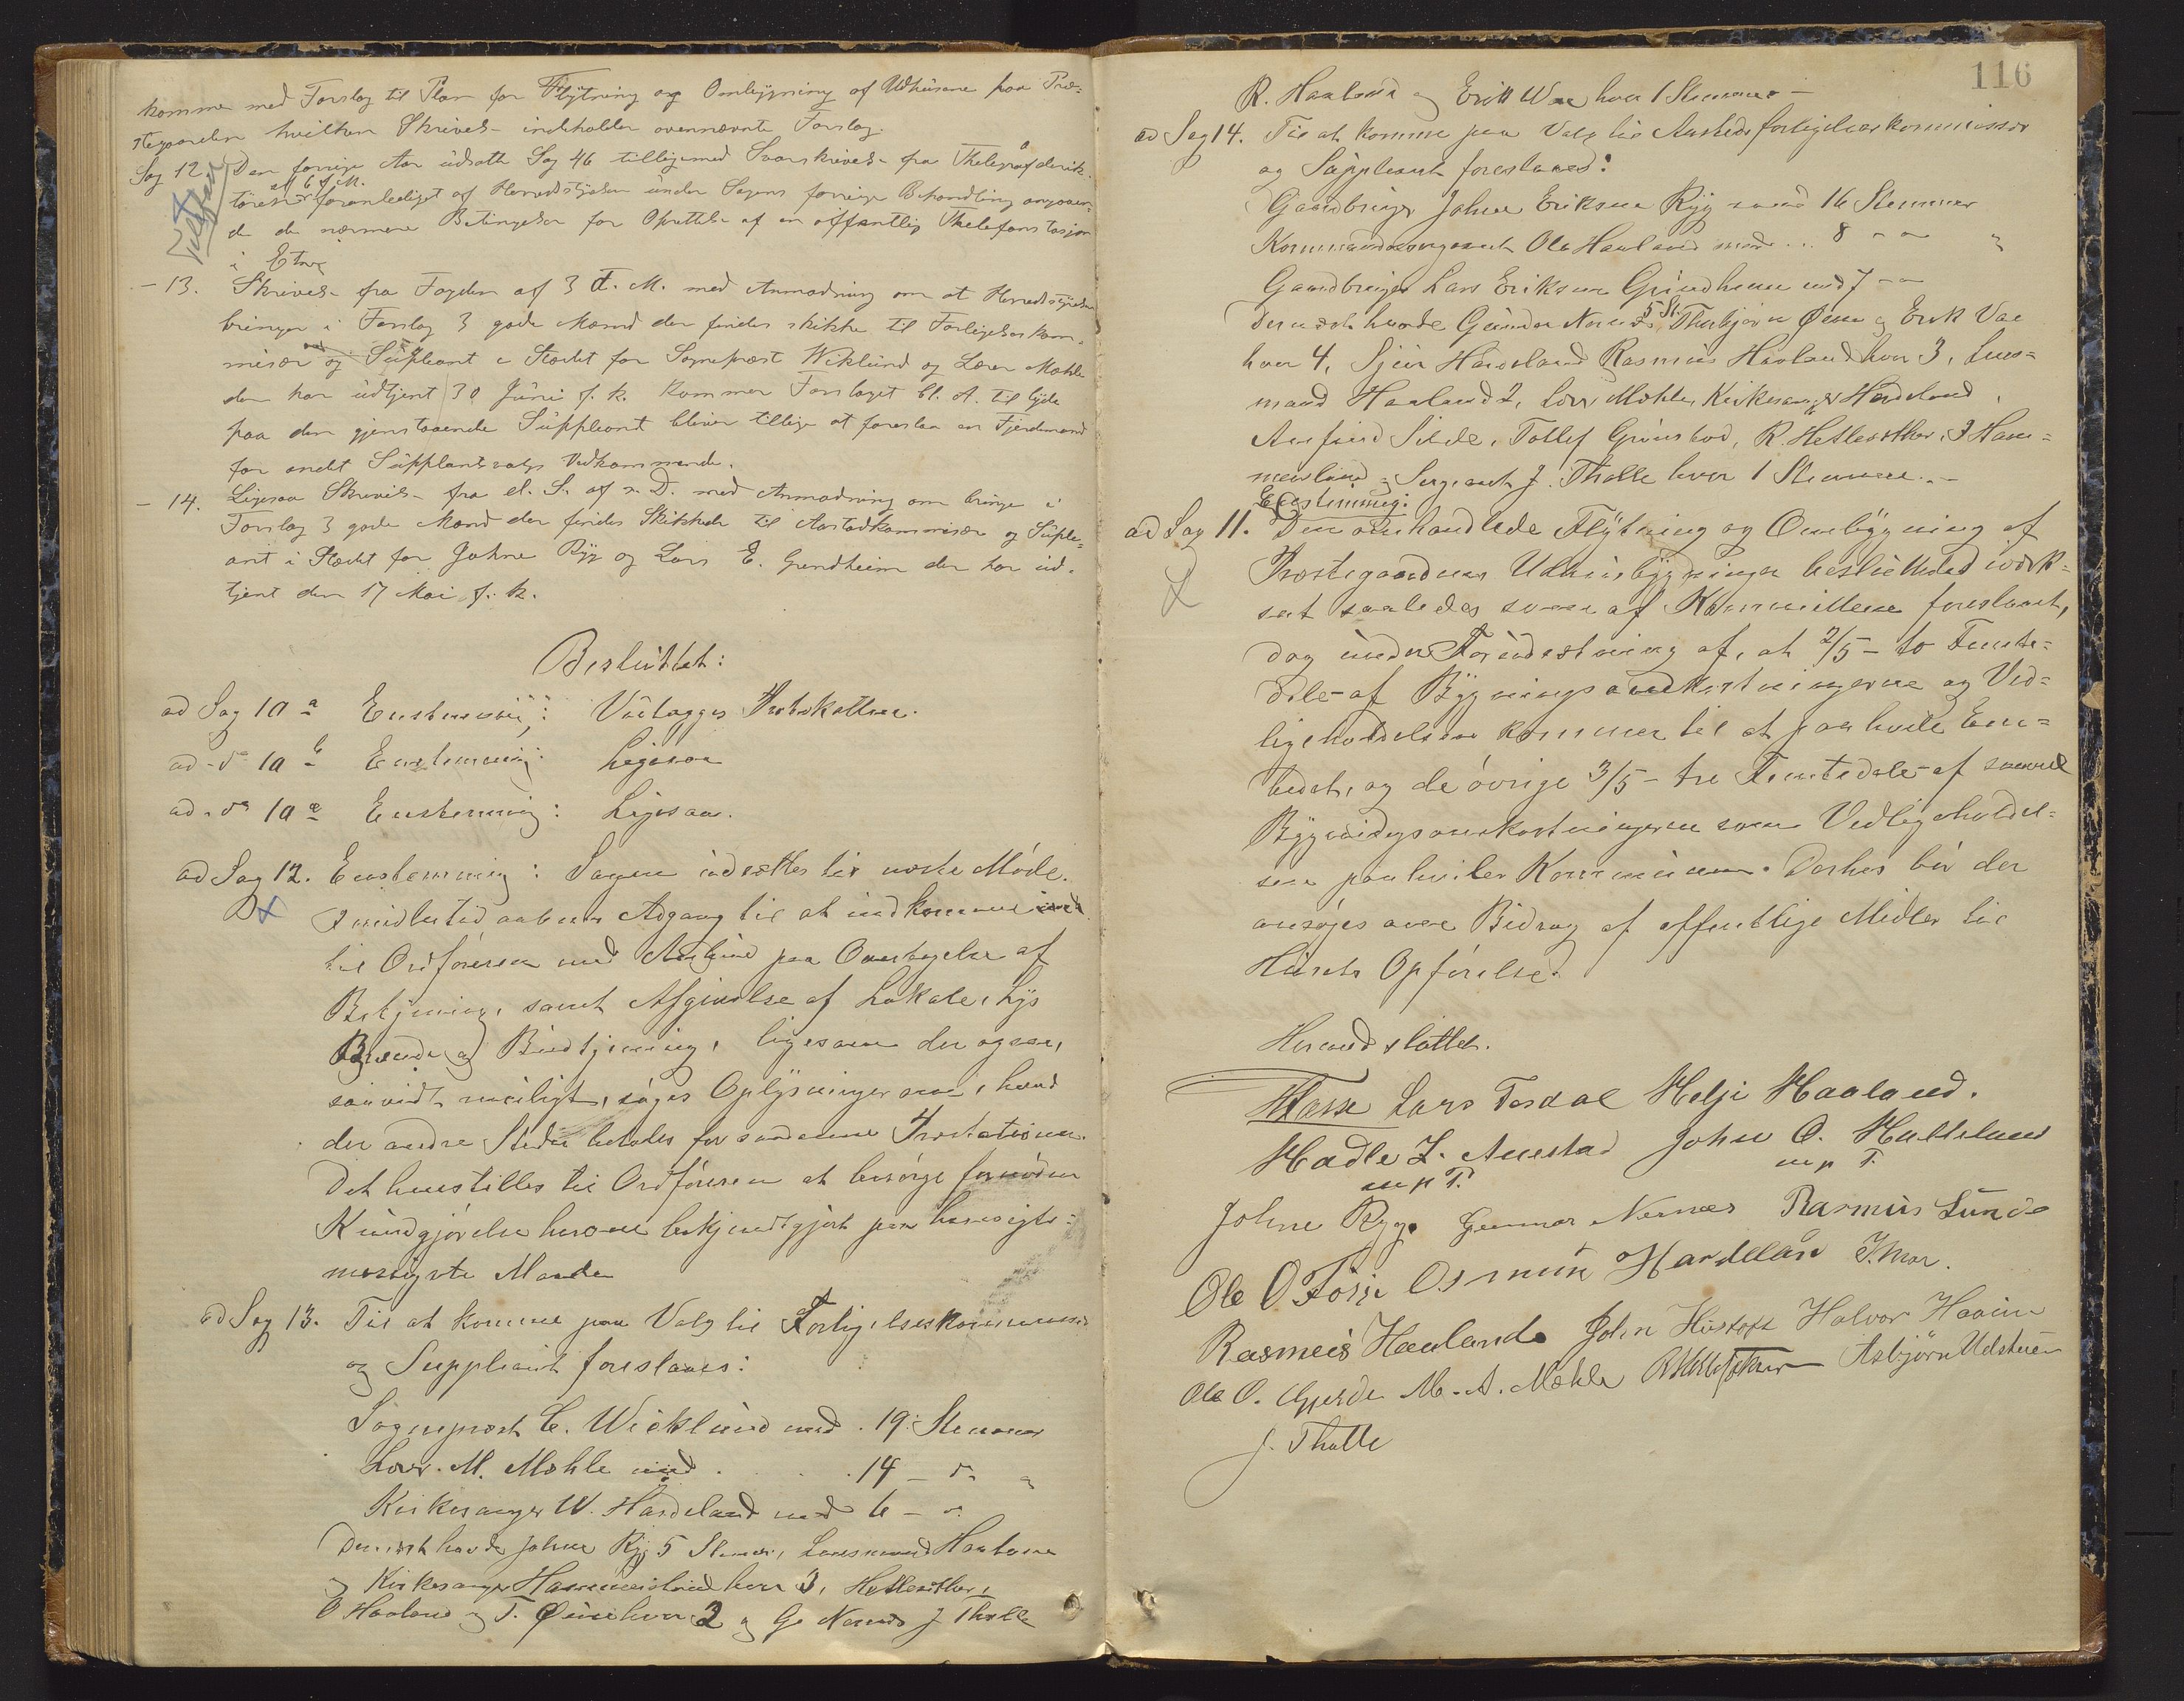 komme med Forslag til Plan for Flÿtning og Ombÿgning af Udhusene paa Præ-
stegaarden hvilken Skrivel- indeholder ovennævnte Forslag.
Sag 12. Den forrige Aar udsatte Sag 46 tilligemed Svarskrivel- fra Thelegrafdirik-
tøren af 6 f. M. foranlediget af Herredsstyrelsen under Sagens forrige Behandling angaaen-
de de nærmere Betingelser for Oprettelse af en offentlig Thelefonstasjon
i Etne
- 13. Skrivel- fra Fogden af 3 d. M. med Anmodning om at Herredsstyrelsen
bringer i Forslag 3 gode Mænd der findes skikket til Forligelseskom-
misær og Supleant i Stedet for Sogneprest Wiklund og Lærer Mæhle
der har udtjent 30 Juni f. k. Kommer Forslaget bl. A. til lyde
paa den gjenstaaende Suppleant bliver tillige at foreslaa en Fjerdemand
for andet Supplantvalgs Vedkommende.
- 14. Ligesaa Skrivels- fra d. S. af s. D. med Anmodning om bringe i
Forslag 3 gode Mænd der findes Skikkede til Aastadkommisær og Suple-
ant i Stedet for Johne Ryg og Lars E. Grindheim der har ud-
tjent den 17 Mai f. k.
Besluttet:
ad Sag 10 a Enstemmig: Vedtagges Protokollen.
ad - d- 10 b Enstemmig: Ligesaa
ad - d- 10 c Enstemmig: Ligesaa.
ad Sag 12. Enstemmig: Sagen udsættes til næste Møde.
Imidlertid aabnes Adgang til at indkomme
til Ordføreren med Anbud paa Overtagelse af
Betjening, samt Afgivelse af Lokale, Lÿs
Brænde og Budtjening, ligesom der ogsaa,
saavidt muligt, søges Oplÿsninger om, hvad
der andre Steder betales for saadanne Præstationer.
Det henstilles til Ordføreren at besørge fornøden
Kundgjørelse herom bekjendtgjort paa hensigts-
mæssigste Maade
ad Sag 13. Til at komme paa Valg til Forligelseskommissær
og Suppleant foreslaaes:
Sogneprest C. Wicklund med . 19 Stemmer
Lærer M. Mæhle med . . . 14 - d- "
Kirkesanger W. Hardeland med 6 - "
Dernæst havde Johne Ryg 5 Stemmer, Lensmand Haaland
og Kirkesanger Hammersland hver 3, Hetlesæther,
O Haaland og T. Øiene hver 2 og G. Nernæs J Tholle
116
R. Haaland og Erik Vae hver 1 Stemme -
ad Sag 14. Til at komme paa Valg til Aastedsforligelseskommissær
og Suppleant foreslaaes:
Gaardbruger Johne Eriksen Ryg med 16 Stemmer
Kommandersergeant Ole Haaland med .. 8 - " - "
Gaardbruger Lars Eriksen Grindheim med 7 - "
Dernæst havde Gunnar Nernæs 5 St. Thorbjørn Øiene og Erik Vae
hver 4, Sjur Hardeland Rasmus Haaland hver 3, Lens-
mand Haaland 2, Lærer Mæhle, Kirkesanger Hardeland,
Tollef Grønstad, R. Hetlesæther, I Ham-
mersland og Sergeant J. Tholle hver 1 Stemme. -
Enstemmig:
ad Sag 11. Den omhandlede Flÿtning og Ombÿgning af
Præstegaardens Udhusbÿgninger besluttedes iværk-
sat saaledes som af Kommitteen foreslaaet,
dog under Forudsætning af, at 2/5 - to Femte-
dele - af Bÿgningsomkostningerne og Ved-
ligeholdelsen kommer til at paahvile Em-
bedet, og de øvrige 3/5 - tre Femtedele - af saavel
Bÿgningsomkostningerne som Vedligeholdel-
sen paahviler Kommunen. Derhos bør der
ansøges om Bidrag af offentlige Midler til
Husets Opførelse.
Hermed sluttet.
Lars Tesdal Helje Haaland.
Hadle L. Auestad John O. Halleland
m p T. m p T.
Johne Ryg. Gunnar Nernæs Rasmus Lunde
Ole O Førje Osmun Hardeland
Rasmus Haaland John Halvor Haaim
Ole O. Gjerde M. A. Mæhle RHetlesæther Asbjørn Udstuen
J. Tholle